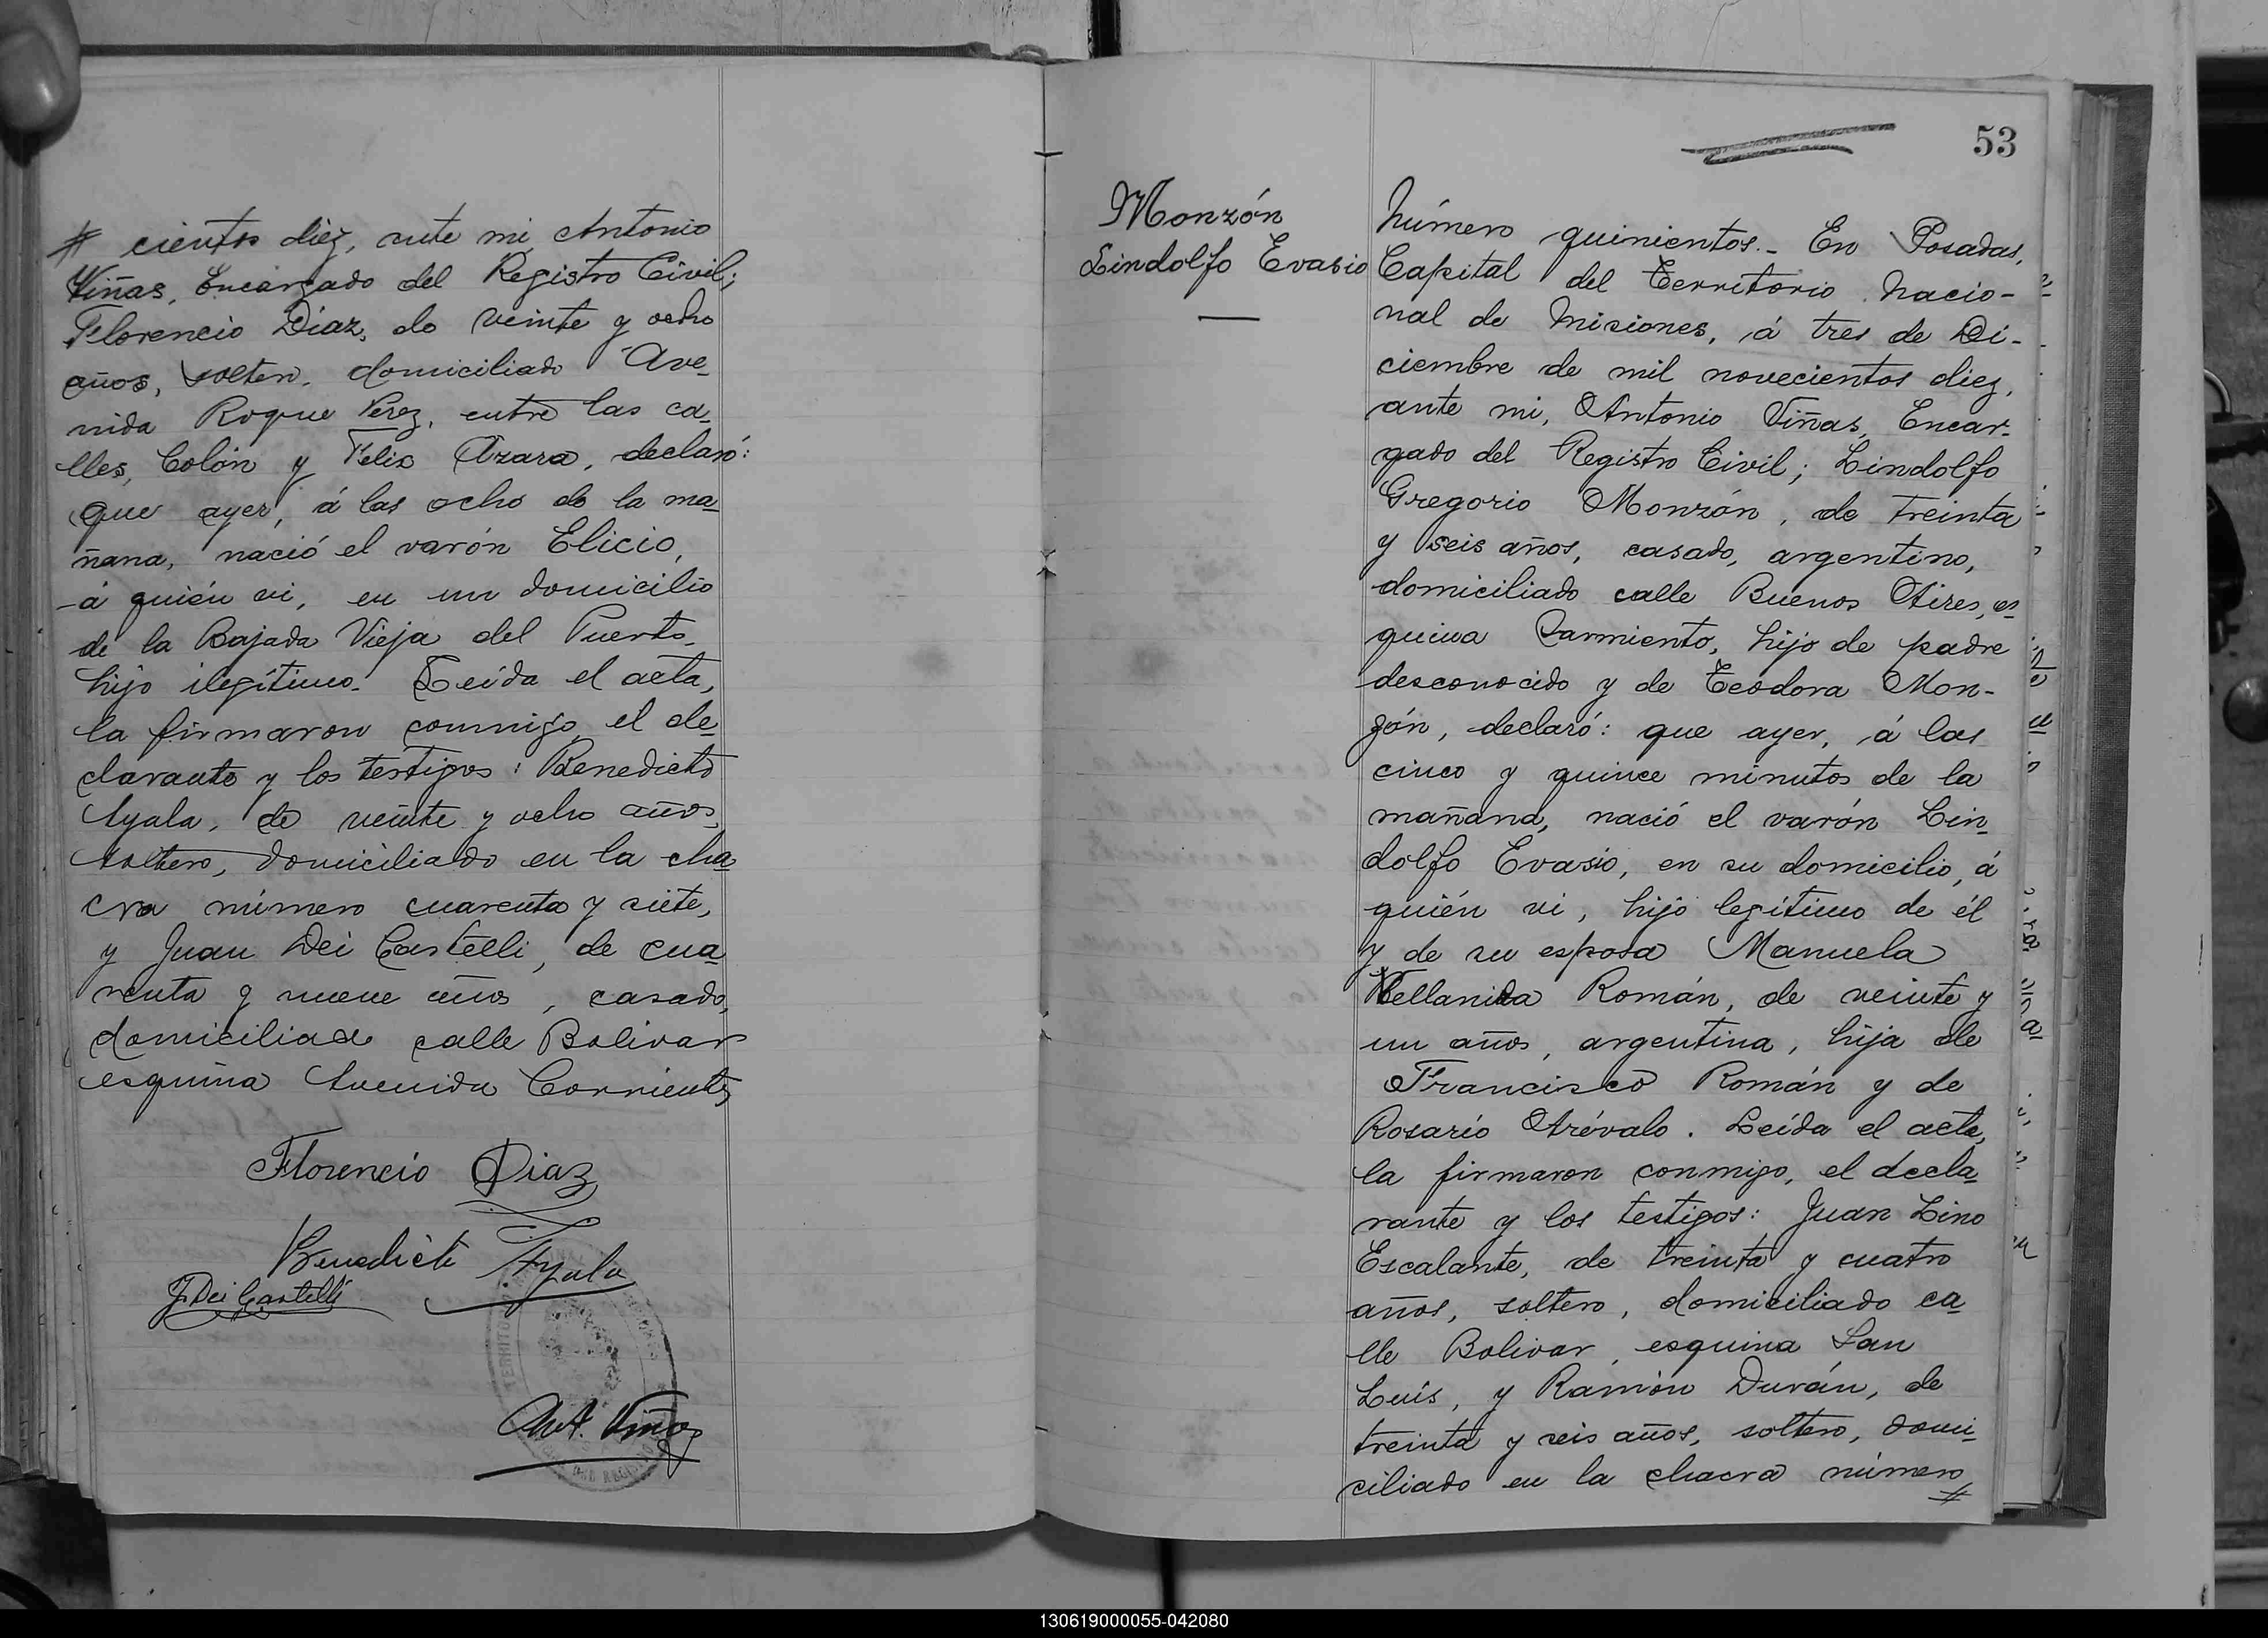 # cientos diez, ante mi Antonio
Viñas, Encargado del Registro Civil;
Florencio Díaz, de veinte y ocho
años, soltero, domiciliado Ave-
nida Roque Perez, entre las ca-
lles, Colón y Felix Azara, declaró:
que ayer, á las ocho de la ma-
ñana, nació el varón Elicio,
á quién vi, en un domicilio
de la Bajada Vieja del Puerto,
hijo ilegítimo. Leída el acta,
la firmaron conmigo, el de-
clarante y los testigos: Benedicto
Ayala, de veinte y ocho años,
soltero, domiciliado en la cha-
cra número cuarenta y siete,
y Juan Dei Castelli, de cua-
renta y nueve años, casado,
domiciliado calle Bolivar
esquina Avenida Corrientes
Florencio Diaz
Benedicto Ayala
J. Dei Castelli
Ant. Viñas
53
Monzón
Lindolfo Evasio
Número quinientos.- En Posadas,
Capital del Territorio Nacio-
nal de Misiones, á tres de Di-
ciembre de mil novecientos diez,
ante mi, Antonio Viñas, Encar-
gado del Registro Civil; Lindolfo
Gregorio Monzón, de treinta
y seis años, casado, argentino,
domiciliado calle Buenos Aires, es-
quina Sarmiento, hijo de padre
desconocido y de Teodora Mon-
zón, declaró: que ayer, á las
cinco y quince minutos de la
mañana, nació el varón Lin-
dolfo Evasio, en su domicilio, á
quién vi, hijo legítimo de él
y de su esposa Manuela
Román, de veinte y
un años, argentina, hija de
Francisco Román y de
Rosario Arévalo. Leída el acta,
la firmaron conmigo, el decla-
rante y los testigos: Juan Lino
Escalante, de treinta y cuatro
años, soltero, domiciliado ca-
lle Bolivar, esquina San
Luis, y Ramón Durán, de
treinta y seis años, soltero, domi-
ciliado en la chacra número
#
130619000055-042080